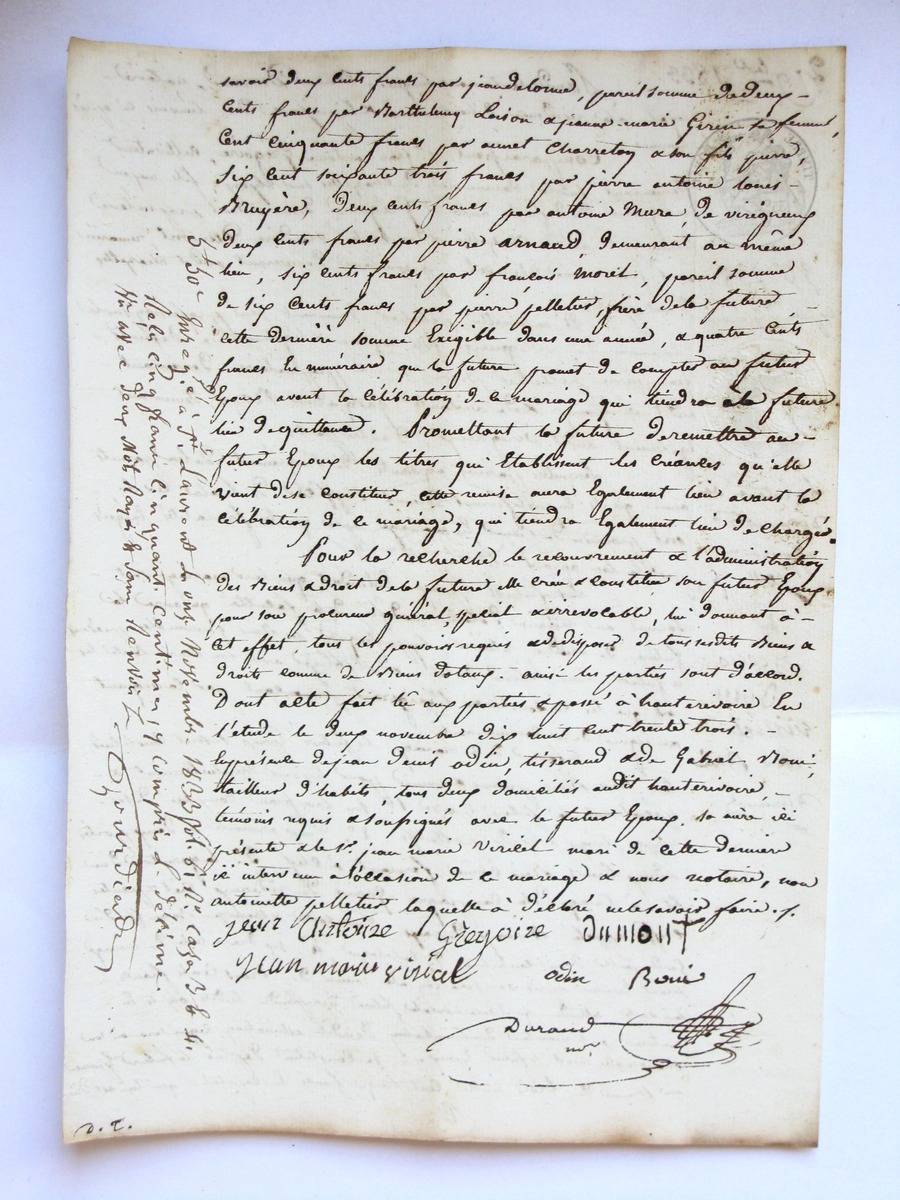 savoir deux cents francs par jean delorme, pareil somme de deux-
cents francs par Barthelemy Loison & jeanne-marie Girin sa femme,
cent cinquante francs par annet Charreton & son fils pierre,
six cent soixante trois francs par pierre antoine louis-
Bruyère, deux cents francs par antoine Mure, de virigneux
deux cents francs par pierre arnaud, demeurant au même
lieu, six cents francs par françois Moret, pareil somme
de six cents francs par pierre pelletier, frère de la future
cette dernière somme Exigible dans une année, & quatre Cents
francs En numéraire que la future promet de compter au futur
Epoux avant la célébration de ce mariage qui tiendra à la future
lieu de quittance. Promettant la future de remettre au-
futur Epoux les titres qui Etablissent les créances qu'elle
vient de se constituer, cette remise aura Egalement lieu avant la
célébration de ce mariage, qui tiendra Egalement lieu de charge.
Pour la recherche le recouvrement & l'administration
des Biens & droit de la future Elle crée & constitue son futur Epoux
pour son procureur général, spécial & irrévocable, lui donnant à-
cet effet, tous les pouvoirs requis & de disposer de tous sesdits Biens &
droits comme de Biens dotaux. ainsi les parties sont d'accord.
Dont acte fait lû aux parties & passé à hauterivoire En
l'étude le deux novembre dix huit cent trente trois. -
En présence de jean denis odin, tisserand & de Gabriel Boui,
tailleur d'habits, tous deux domiciliés audit hauterivoire, -
témoins requis & soussignés avec le futur Epoux, sa mère ici
présente & le sr. jean marie Viricel mari de cette dernière
ici intervenu à l'occasion de ce mariage & nous notaire, non
antoinette pelletier laquelle à déclaré ne le savoir faire. /.
jean Antoine Grégoire dumont
jean marie viricel odin Boui
Durand
nre
Enregé à St Laurent le onze Novembre 1833 fol. 61 No Case 3 & 4.
Reçu cinq francs cinquante centimes, y compris le décime.
Vu avec deux Mots Rayés & sans Renvoi
D. T.